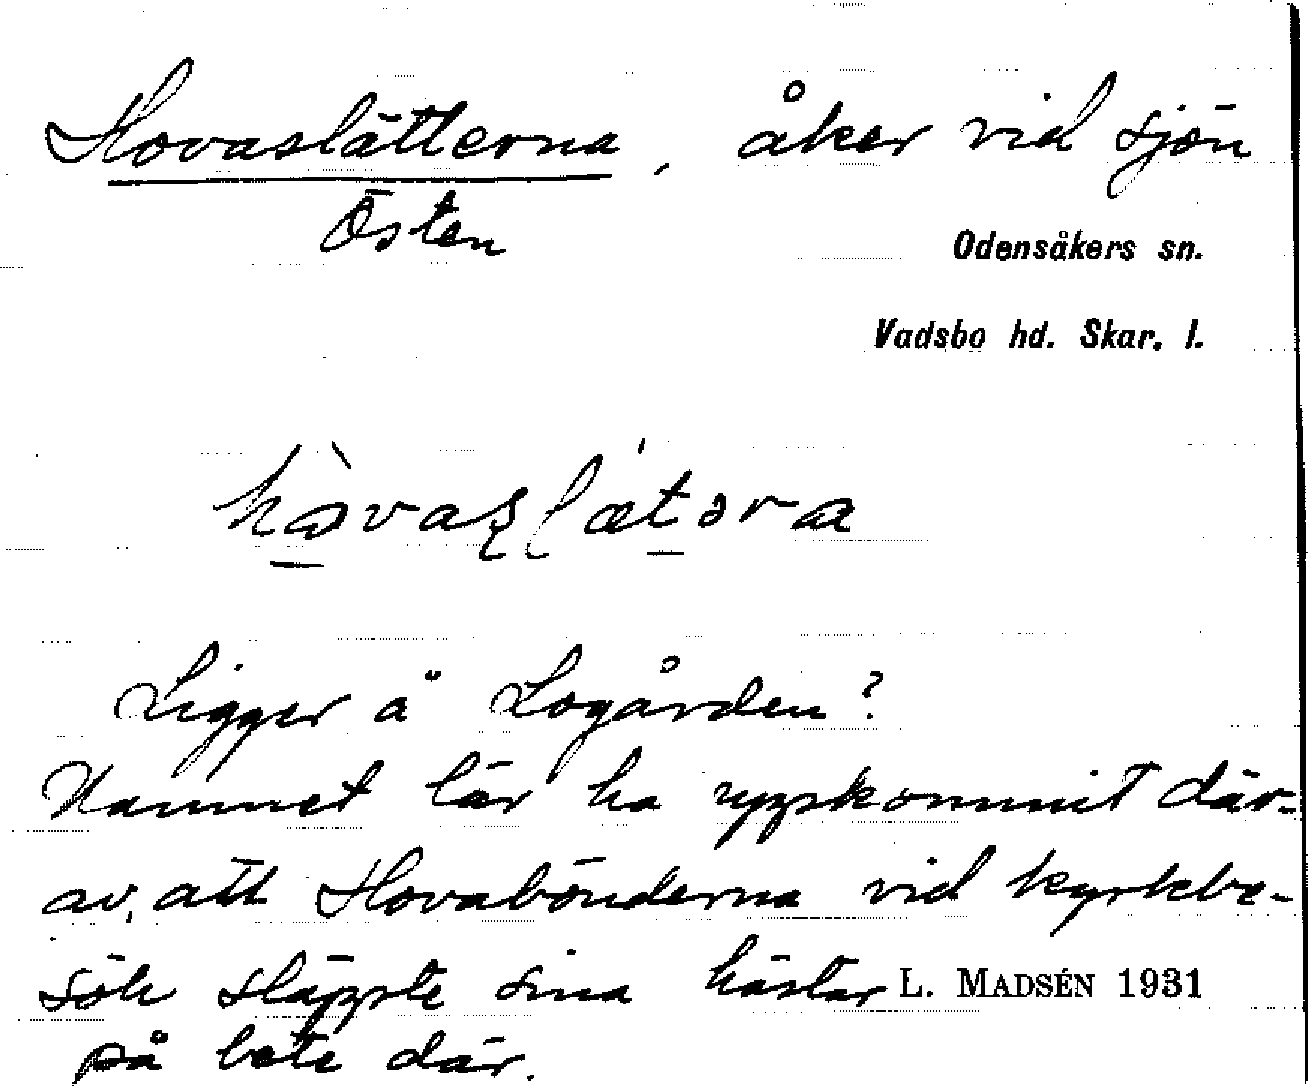 Hovaslätterna, åker vid sjön
Östen
Odensåkers sn.
Vadsbo hd. Skar. l.
Ligger å Logården?
Namnet lär ha uppkommit där-
av, att Hovabönderna vid kyrkbe-
sök släppte sina hästar
L. MADSÉN 1931
på bete där.